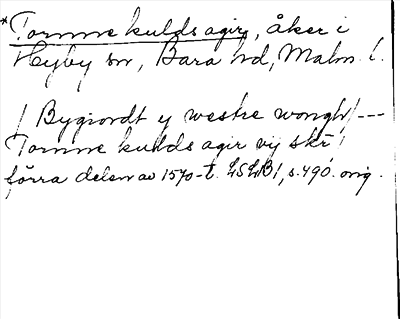 *Tommekuldsagir, åker i
Hyby sn, Bara hd, Malm. l.
/ Bygiordt y westre wongh/ ---
Tommekuldsagir vij skr /
förra delen av 1570-t. LSLB1, s.490. orig.